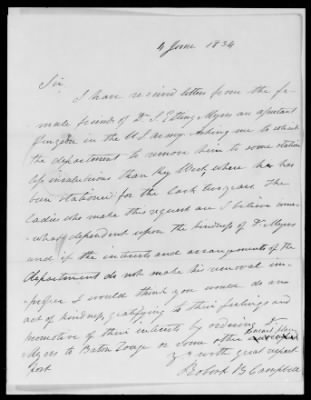 4 June 1834
Sir,
I have received letters from the fe-
male friends of Dr. J. Eting Myers an assistant
surgeon in the U S army asking me to solicit
the department to remove him to some station
less insalubrious than Key West, where he has
been stationed for the last two years. The
Ladies who make this request are I believe some-
what dependent upon the kindness of Dr Myers
and if the interests and arrangements of the
department do not make his removal im-
proper I would think you would do an
act of kindness, gratifying to their feelings and
promotive of their interests by ordering Dr
Myers to Baton Rouge or some other
post
with great respect
Robert B Campbell